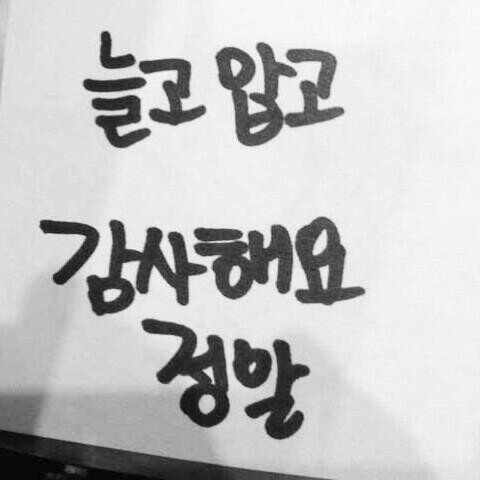 늘고 맙고
감사해요
정말